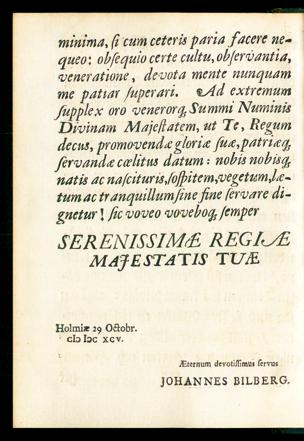 minima, si cum ceteris paria facere ne-
queo: obsequio certe cultu, observantia,
veneratione, devota mente nunquam
me patiar superari. Ad extremum
supplex oro venerorq, Summi Numinis
Divinam Majestatem, ut Te, Regum
decus, promovendæ gloriæ suæ, patriæq,
servandæ cœlitus datum: nobis nobisq,
natis ac nascituris, sospitem, vegetum, læ-
tum ac tranquillum sine fine servare di-
gnetur! sic voveo voveboq, semper
SERENISSIMÆ REGIÆ
MAJESTATIS TUÆ
Holmiæ 29 Octobr.
cIↄ Iↄc XCV.
Æternum devotissimus servus
JOHANNES BILBERG.